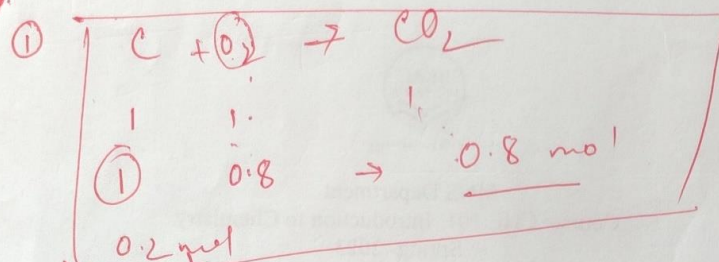 ① C + O₂ → CO₂
1 1. 1.
① 0.8 → 0.8 mol
0.2 mol